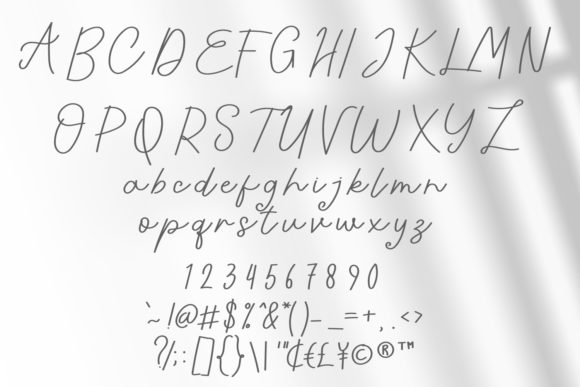 A B C D E F G H I J K L M N
O P Q R S T U V W X Y Z
a b c d e f g h i j k l m n
o p q r s t u v w x y z
1 2 3 4 5 6 7 8 9 0
` ~ ! @ # $ % ^ & * ( ) - _ = + , . < >
? / ; : [ ] { } \ | ' " ₵ € £ ¥ © ® ™